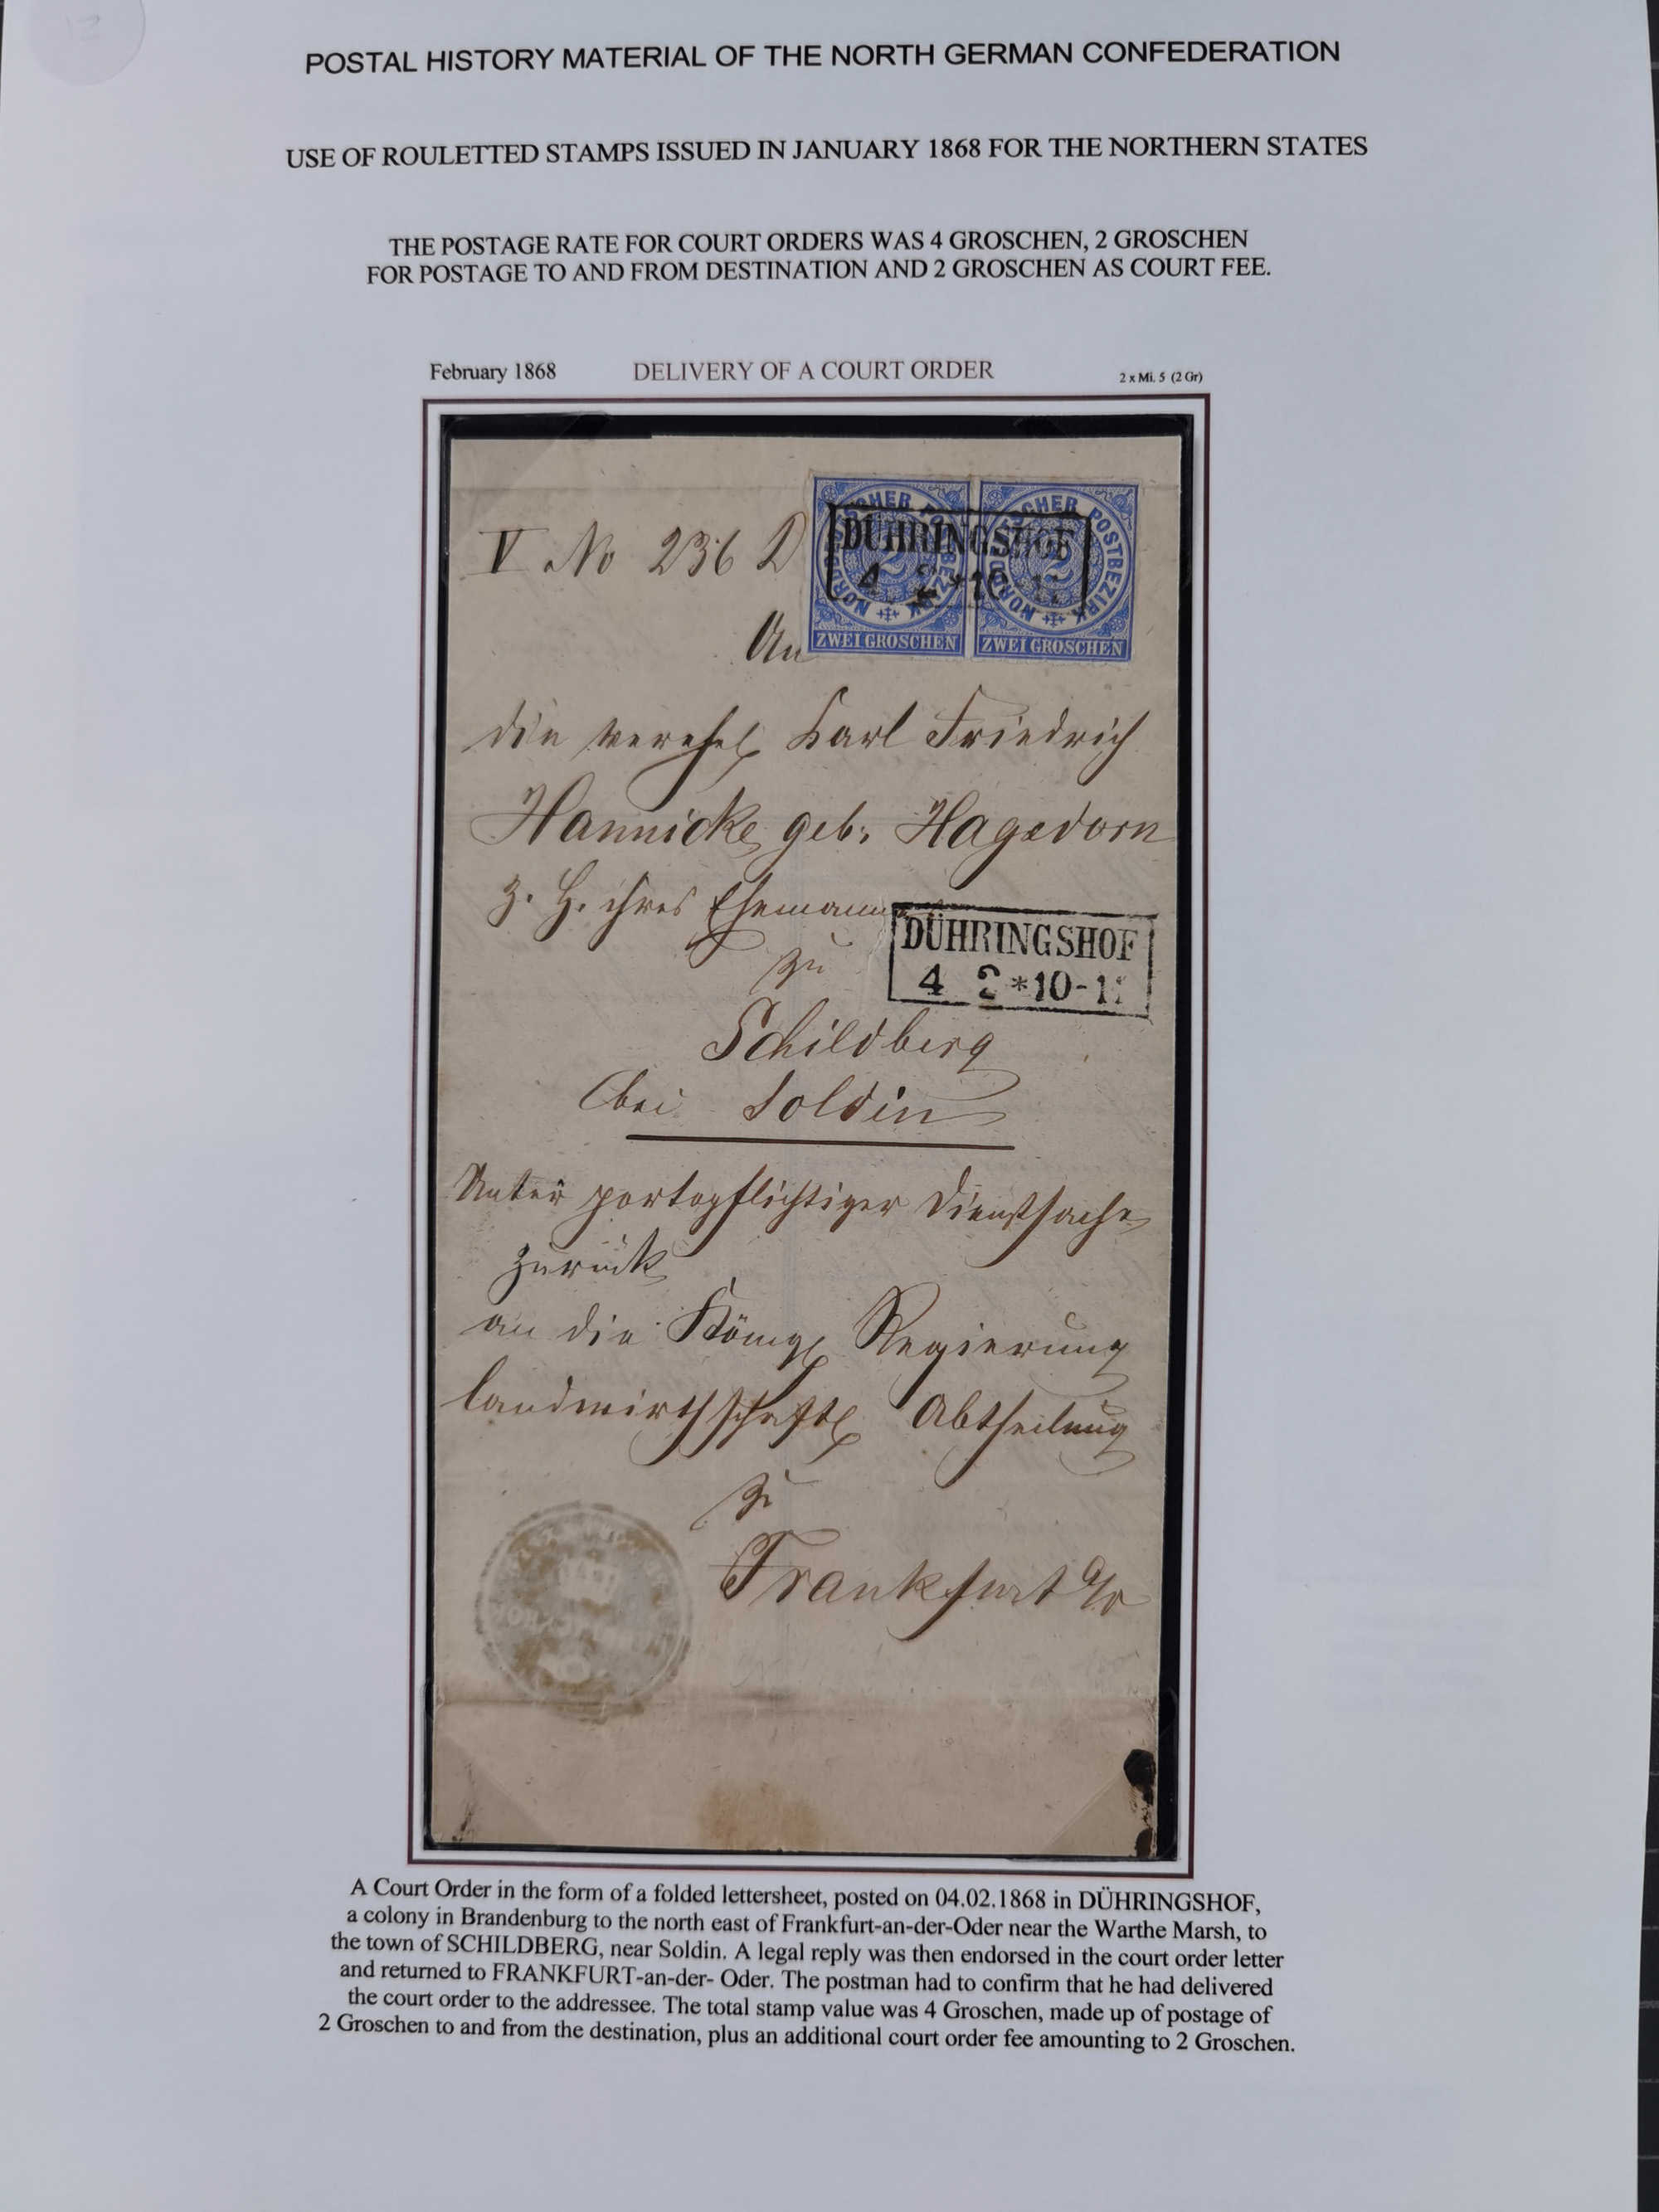 POSTAL HISTORY MATERIAL OF THE NORTH GERMAN CONFEDERATION
USE OF ROULETTED STAMPS ISSUED IN JANUARY 1868 FOR THE NORTHERN STATES
THE POSTAGE RATE FOR COURT ORDERS WAS 4 GROSCHEN, 2 GROSCHEN
FOR POSTAGE TO AND FROM DESTINATION AND 2 GROSCHEN AS COURT FEE.
February 1868 DELIVERY OF A COURT ORDER 2 x Mi. 5 (2 Gr)
V No 236 D
DÜHRINGSHOF
4 2 * 10
2 2
ZWEI GROSCHEN ZWEI GROSCHEN
An
die verehel Karl Friedrich
Hannicke geb: Hagedorn
z. H. ihres Ehemanns
DÜHRINGSHOF
4 2 * 10-11
zu
Schildberg
bei Soldin
Unter portopflichtiger Dienstsache
zurück
an die Königl Regierung
landwirthschaftl Abtheilung
zu
Frankfurt a/o
A Court Order in the form of a folded lettersheet, posted on 04.02.1868 in DÜHRINGSHOF,
a colony in Brandenburg to the north east of Frankfurt-an-der-Oder near the Warthe Marsh, to
the town of SCHILDBERG, near Soldin. A legal reply was then endorsed in the court order letter
and returned to FRANKFURT-an-der- Oder. The postman had to confirm that he had delivered
the court order to the addressee. The total stamp value was 4 Groschen, made up of postage of
2 Groschen to and from the destination, plus an additional court order fee amounting to 2 Groschen.